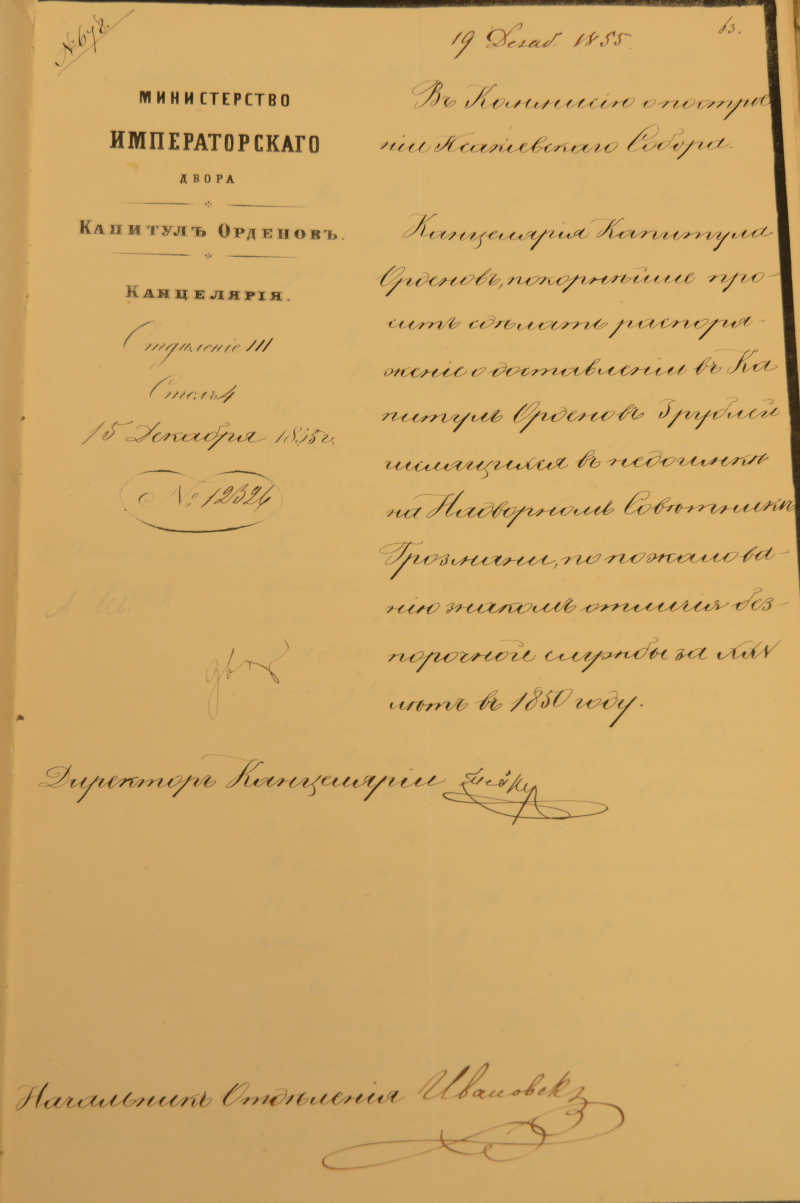 № 678.
19 Декаб 1855.
63.
МИНИСТЕРСТВО
ИМПЕРАТОРСКАГО
ДВОРА
КАПИТУЛЪ ОРДЕНОВЪ.
КАНЦЕЛЯРІЯ.
Отдѣленіе III
Столъ 4
15 Декабря 1855 г.
№ 12324
Въ Коммисію о построе
ніи Исакіевскаго Собора.
Канцелярія Капитула
Орденовъ, покорнѣйше про-
ситъ сдѣлать распоря-
женіе о доставленіи въ Ка
питулъ Орденовъ 3 рублей
числящихся въ недоимкѣ
на Надворномъ Совѣтникѣ
по пожалова-
нію знакомъ отличія без-
порочной службы за XXV
лѣтъ въ 1850 году.
Директоръ Канцеляріи
Начальникъ Отдѣленія Ивановск